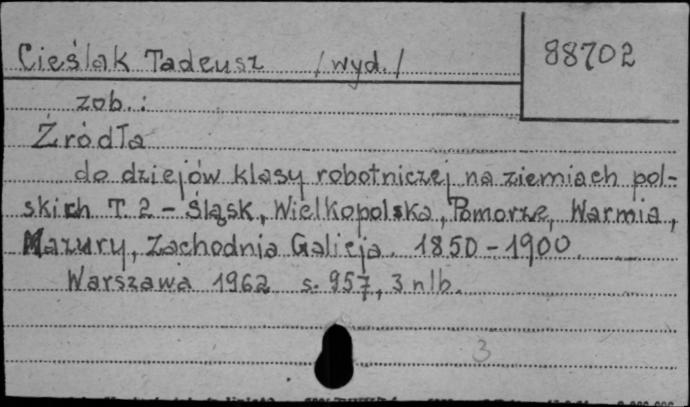 Cieślak Tadeusz /wyd./
88702
zob.:
Źródła
do dziejów klasy robotniczej na ziemiach pol-
skich T. 2 - Śląsk, Wielkopolska, Pomorze, Warmia,
Mazury, Zachodnia Galicja. 1850-1900.
Warszawa 1962 s. 957, 3 nlb.
3